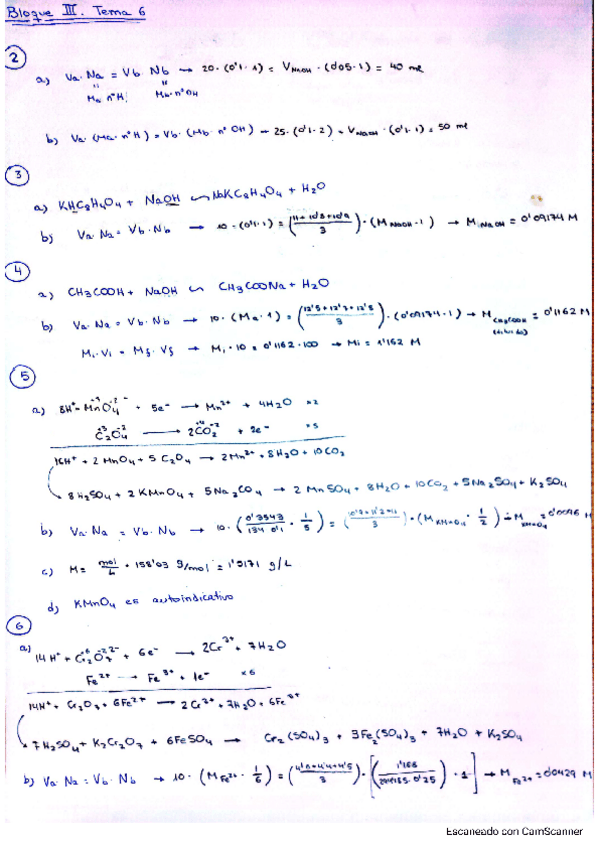 Bloque III. Tema 6
2
a) Va·Na = Vb·Nb → 20·(0'1·1) = VNaOH·(0'05·1) = 40 ml
Ma·nºH Mb·nºOH
b) Va·(Ma·nºH) = Vb·(Mb·nºOH) → 25·(0'1·2) = VNaOH·(0'1·1) = 50 ml
3
a) KHC8H4O4 + NaOH NaKC8H4O4 + H2O
b) Va·Na = Vb·Nb → 10·(0'1·1) = ( / 3)·(MNaOH·1) → MNaOH = 0'09174 M
4
a) CH3COOH + NaOH CH3COONa + H2O
b) Va·Na = Vb·Nb → 10·(Ma·1) = (12'5+12'3+12'5 / 3)·(0'09174·1) → MCH3COOH = 0'1162 M
(diluido)
Mi·Vi = Mf·Vf → Mi·10 = 0'1162·100 → Mi = 1'162 M
5
a) 8H+ MnO4- + 5e- → Mn2+ + 4H2O ×2
C2O4-2 → 2CO2 + 2e- ×5
16H+ + 2MnO4 + 5C2O4 → 2Mn2+ + 8H2O + 10CO2
8H2SO4 + 2KMnO4 + 5Na2CO4 → 2MnSO4 + 8H2O + 10CO2 + 5Na2SO4 + K2SO4
b) Va·Na = Vb·Nb → 10·( / 134·0'1 · 1/5) = ( / 3)·(MKMnO4·1/2) → MKMnO4
c) M = mol/L · 158'03 g/mol = g/L
d) KMnO4 es autoindicativo
6
a) 14H+ + Cr2O7 2- + 6e- → 2Cr3+ + 7H2O
Fe2+ → Fe3+ + 1e- ×6
14H+ + Cr2O7 + 6Fe2+ → 2Cr3+ + 7H2O + 6Fe3+
7H2SO4 + K2Cr2O7 + 6FeSO4 → Cr2(SO4)3 + 3Fe2(SO4)3 + 7H2O + K2SO4
b) Va·Na = Vb·Nb → 10·(MFe2+·1/6) = ( / 3)·[( )·1] → MFe2+ = 0'0429 M
Escaneado con CamScanner